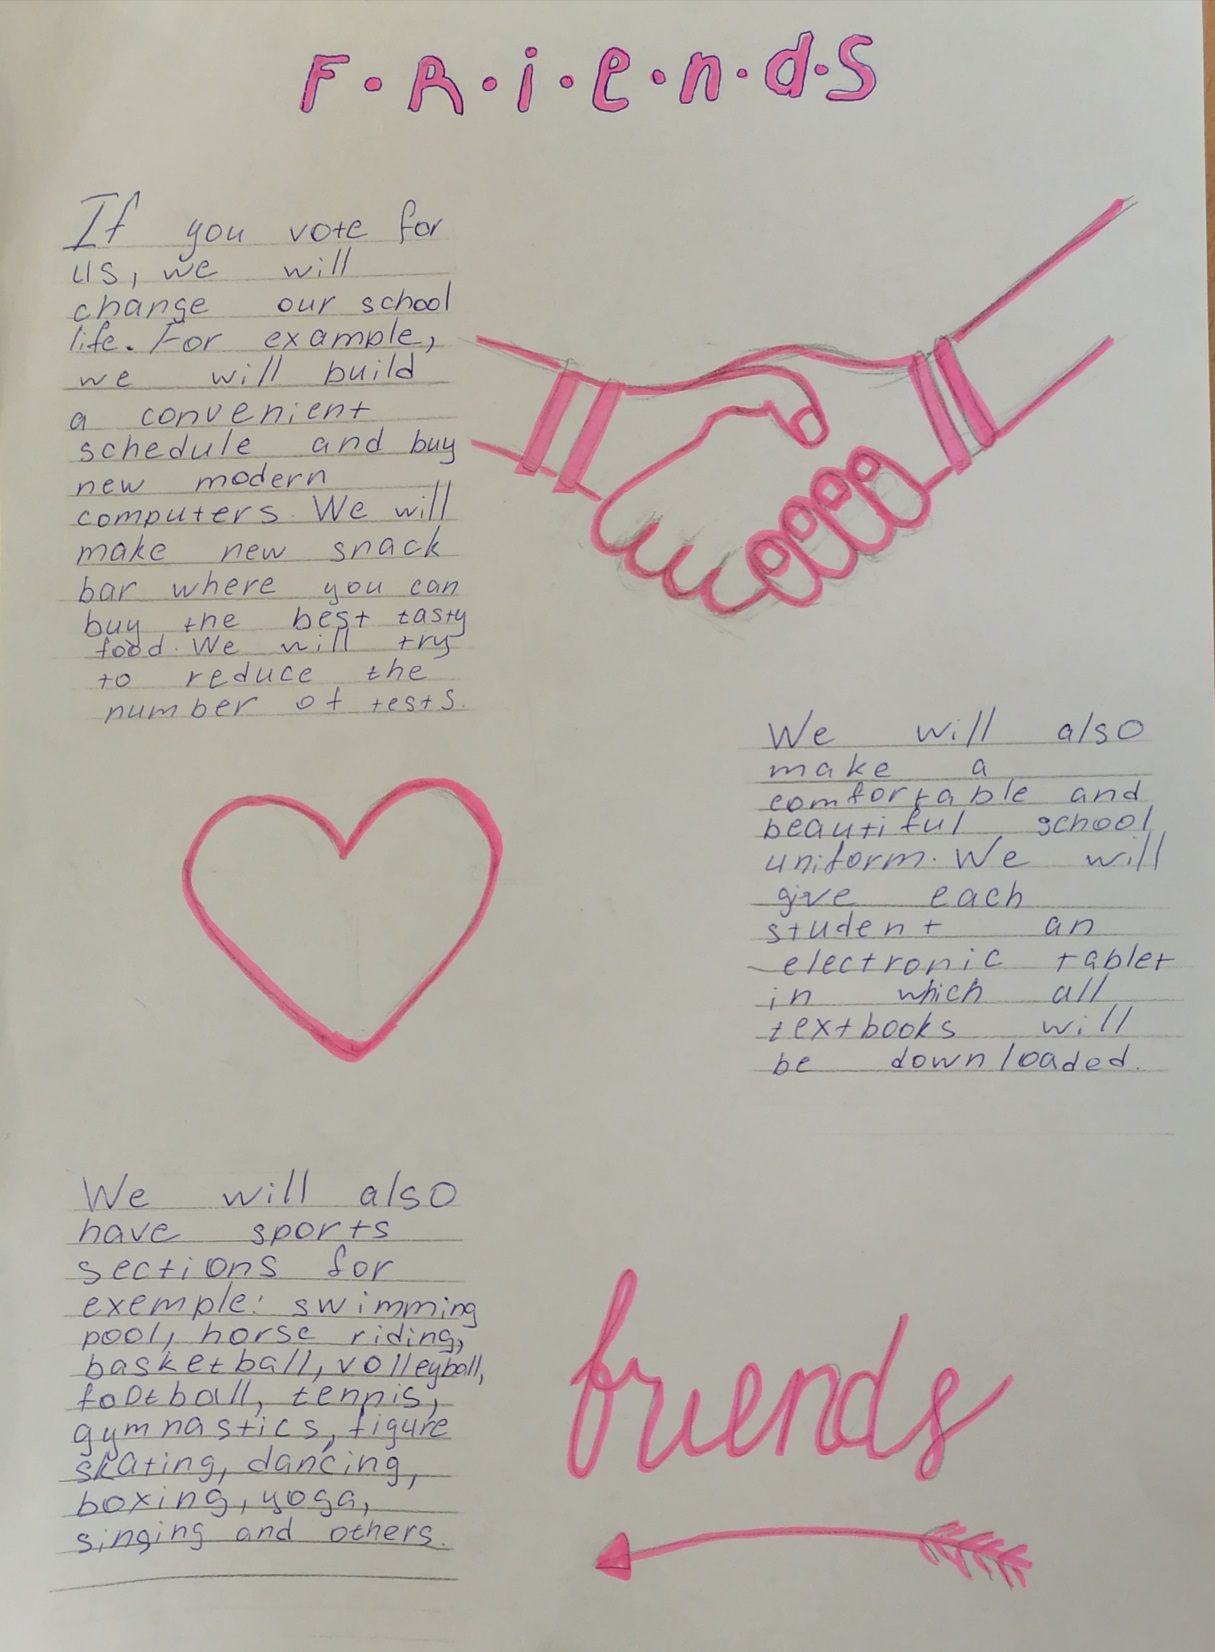 F·R·i·e·n·d·s
If you vote for
us, we will
change our school
life. For example,
we will build
a convenient
schedule and buy
new modern
computers. We will
make new snack
bar where you can
buy the best tasty
food. We will try
to reduce the
number of tests.
We will also
make a
comfortable and
beautiful school
uniform. We will
give each
student an
electronic tablet
in which all
textbooks will
be downloaded.
We will also
have sports
sections for
exemple: swimming
pool, horse riding,
basketball, volleyball,
football, tennis,
gymnastics, figure
skating, dancing,
boxing, yoga,
singing and others.
friends